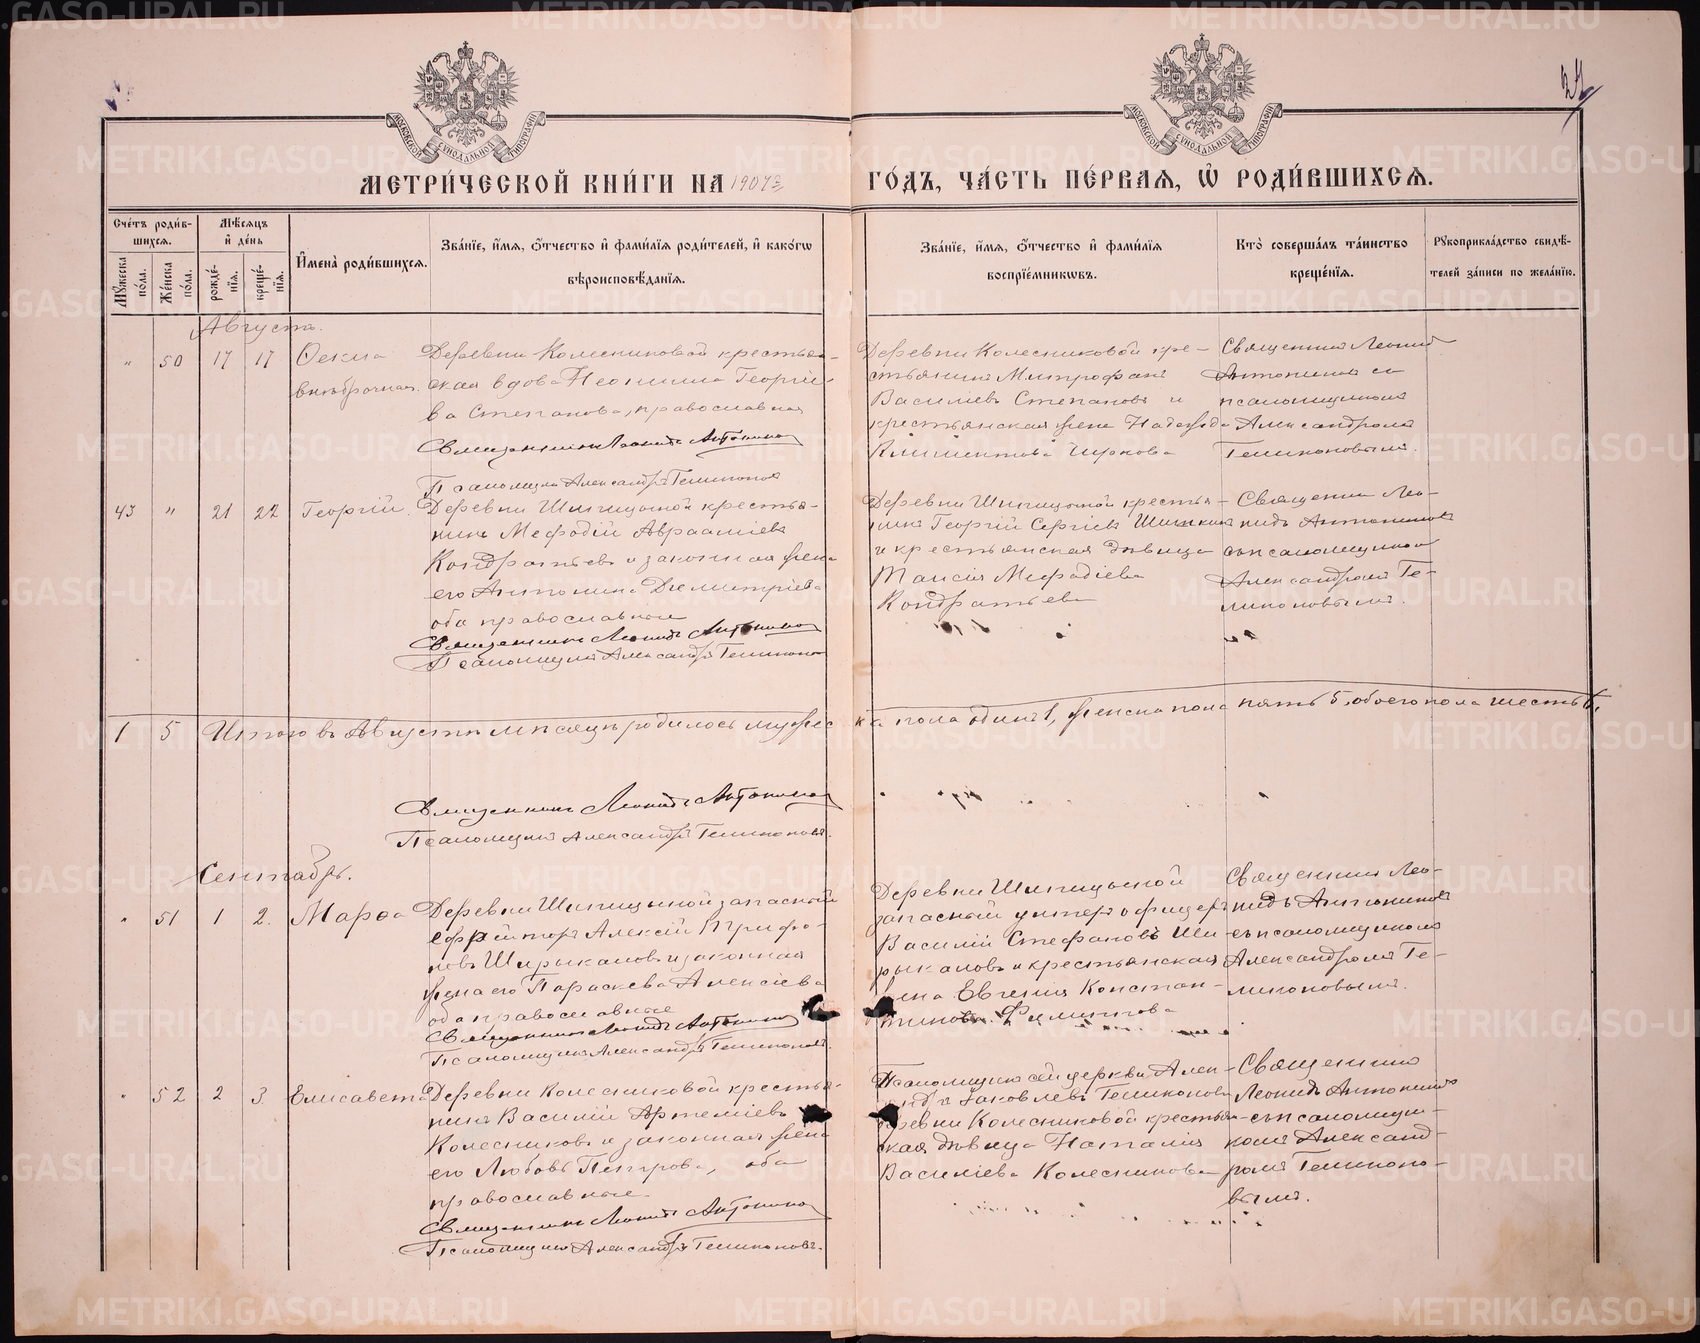 METRIKI.GASO-URAL.RU
МОСКОВСКОЙ СѴНОДАЛЬНОЙ ТИПОГРАФІИ
МОСКОВСКОЙ СѴНОДАЛЬНОЙ ТИПОГРАФІИ
МЕТРИ́ЧЕСКОЙ КНИ́ГИ НА 1907
ГО́ДЪ, ЧА́СТЬ ПЕ́РВАЯ, Ѡ҆ РОДИ́ВШИХСЯ.
Сче́тъ роди́в-
шихся.
Мѣ́сяцъ
и҆ де́нь
И҆мена̀ роди́вшихся.
Зва́нїе, и҆́мя, ѻ҆́тчество и҆ фами́лїя роди́телей, и҆ како́гѡ
вѣроисповѣ́данїя.
Мꙋ́жеска по́ла.
Же́нска по́ла.
рожде́нїя.
креще́нїя.
Зва́нїе, и҆́мя, ѻ҆́тчество и҆ фами́лїя
воспрїе́мникѡвъ.
Кто̀ соверша́лъ та́инство
креще́нїя.
Рꙋкоприкла́дство свидѣ́-
телей за́писи по жела́нїю.
Августъ.
" 50 17 17 Ѳекла
внѣбрачная.
Деревни Колесниковой крестьян-
ская вдова Неонилла Георгіе-
ва Степанова, православная
Священникъ Леонидъ Антониновъ
Псаломщикъ Александръ
Деревни Колесниковой кре-
стьянинъ Митрофанъ
Василіевъ Степановъ и
крестьянская жена Надежда
Климентова
Священникъ Леонидъ
Антониновъ съ
псаломщикомъ
Александромъ
43 " 21 22 Георгій.
Деревни Шипицыной крестья-
нинъ Меѳодій Авраамiевъ
Кондратьевъ и законная жена
его Антонина Димитріева
оба православные
Священникъ Леонидъ Антониновъ
Псаломщикъ Александръ
Деревни Шипицыной крестья-
нинъ Георгій Сергіевъ
и крестьянская дѣвица
Таисія Меѳодіева
Кондратьева
Священникъ Лео-
нидъ Антониновъ
съ псаломщикомъ
Александромъ
1 5 Итого въ Августѣ мѣсяцѣ родилось мужес
ка пола одинъ 1, женска пола пять 5, обоего пола шесть 6.
Священникъ Леонидъ Антониновъ
Псаломщикъ Александръ
Сентябрь.
" 51 1 2. Марѳа
Деревни Шипицыной запасный
ефрейторъ Алексій Трифо-
новъ Ширыкаловъ и законная
жена его Параскева Алексіева
оба православные
Священникъ Леонидъ Антониновъ
Псаломщикъ Александръ
Деревни Шипицыной
запасный унтеръ офицеръ
Василій Стефановъ Ши-
рыкаловъ и крестьянская
жена Евгенія Констан-
тинова
Священникъ Лео-
нидъ Антониновъ
съ псаломщикомъ
Александромъ
" 52 2 3 Елисавета
Деревни Колесниковой крестья-
нинъ Василій Артеміевъ
Колесниковъ и законная жена
его Любовь Петрова, оба
православные
Священникъ Леонидъ Антониновъ
Псаломщикъ Александръ
Псаломщикъ сей церкви Алек-
сандръ Іаковлевъ
деревни Колесниковой крестьян-
ская дѣвица Наталія
Василіева Колесникова
Священникъ
Леонидъ Антониновъ
съ псаломщи-
комъ Александ-
ромъ
вымъ.